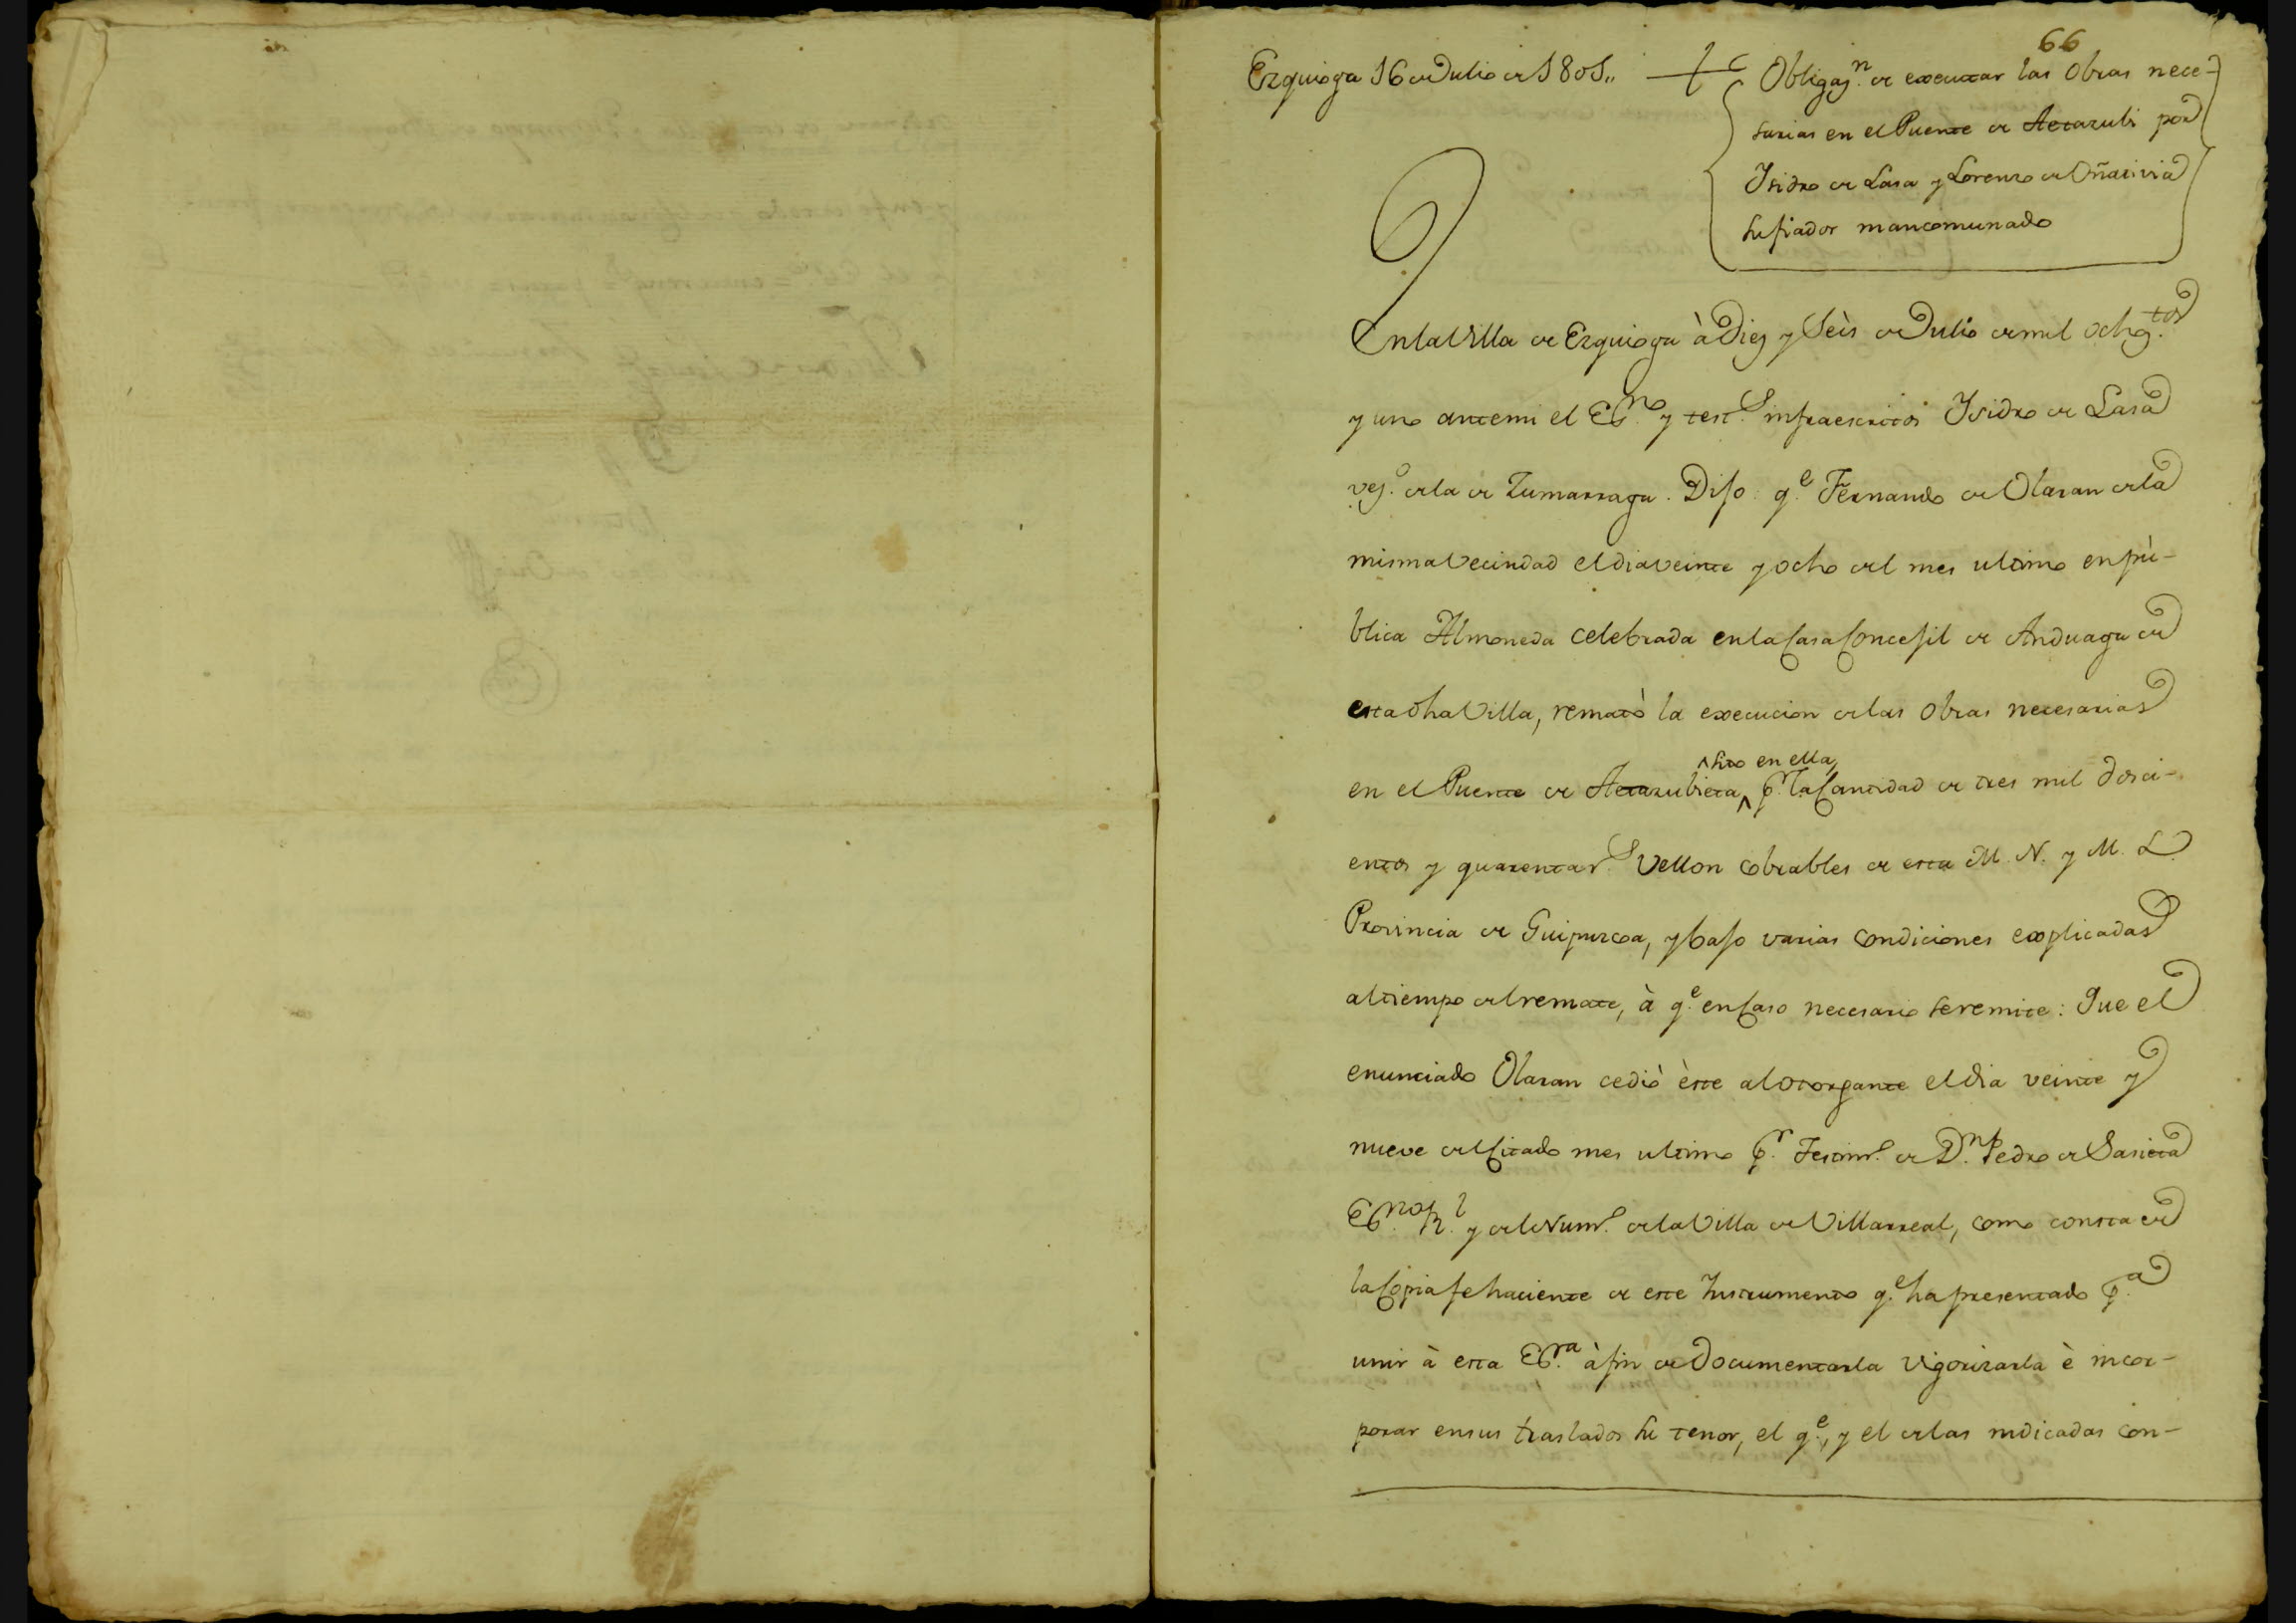 66
Ezquioga 16 de Julio de 1801,,
Obligaz.n de executar las Obras nece-
sarias en el Puente de Aetazubi por
Isidro de Lasa y Lorenzo de Oñativia
su fiador mancomunado
En la Villa de Ezquioga à Diez y Seis de Julio de mil ochoz.tos
y uno ante mi el Es.no y test.s infraescritos Isidro de Lasa
vez.o de la de Zumarraga. Dijo: q.e Fernando de Olaran de la
misma Vecindad el dia veinte y ocho del mes ultimo en pù-
blica Almoneda celebrada en la Casa Concejil de Anduaga de
esta dha Villa, remató la execucion de las Obras necesarias
sito en ella,
en el Puente de Aetazubieta p.r la Cantidad de tres mil dosci-
entos y quarenta r.s Vellon cobrables de esta M. N. y M. L.
Provincia de Guipuzcoa, y bajo varias condiciones explicadas
al tiempo del remate, à q.e en Caso necesario se remite: Que el
enunciado Olaran cediò èste al otorgante el dia veinte y
nueve del Citado mes ultimo p.r Testim.o de D.n Pedro de Sasieta
Es.no R.l y del Num.o de la Villa de Villarreal, como consta de
la Copia fehaciente de este Instrumento q.e ha presentado p.a
unir à esta Es.ra à fin de Documentarla vigorizarla è incor-
porar en sus traslados su tenor, el q.e, y el de las indicadas con-